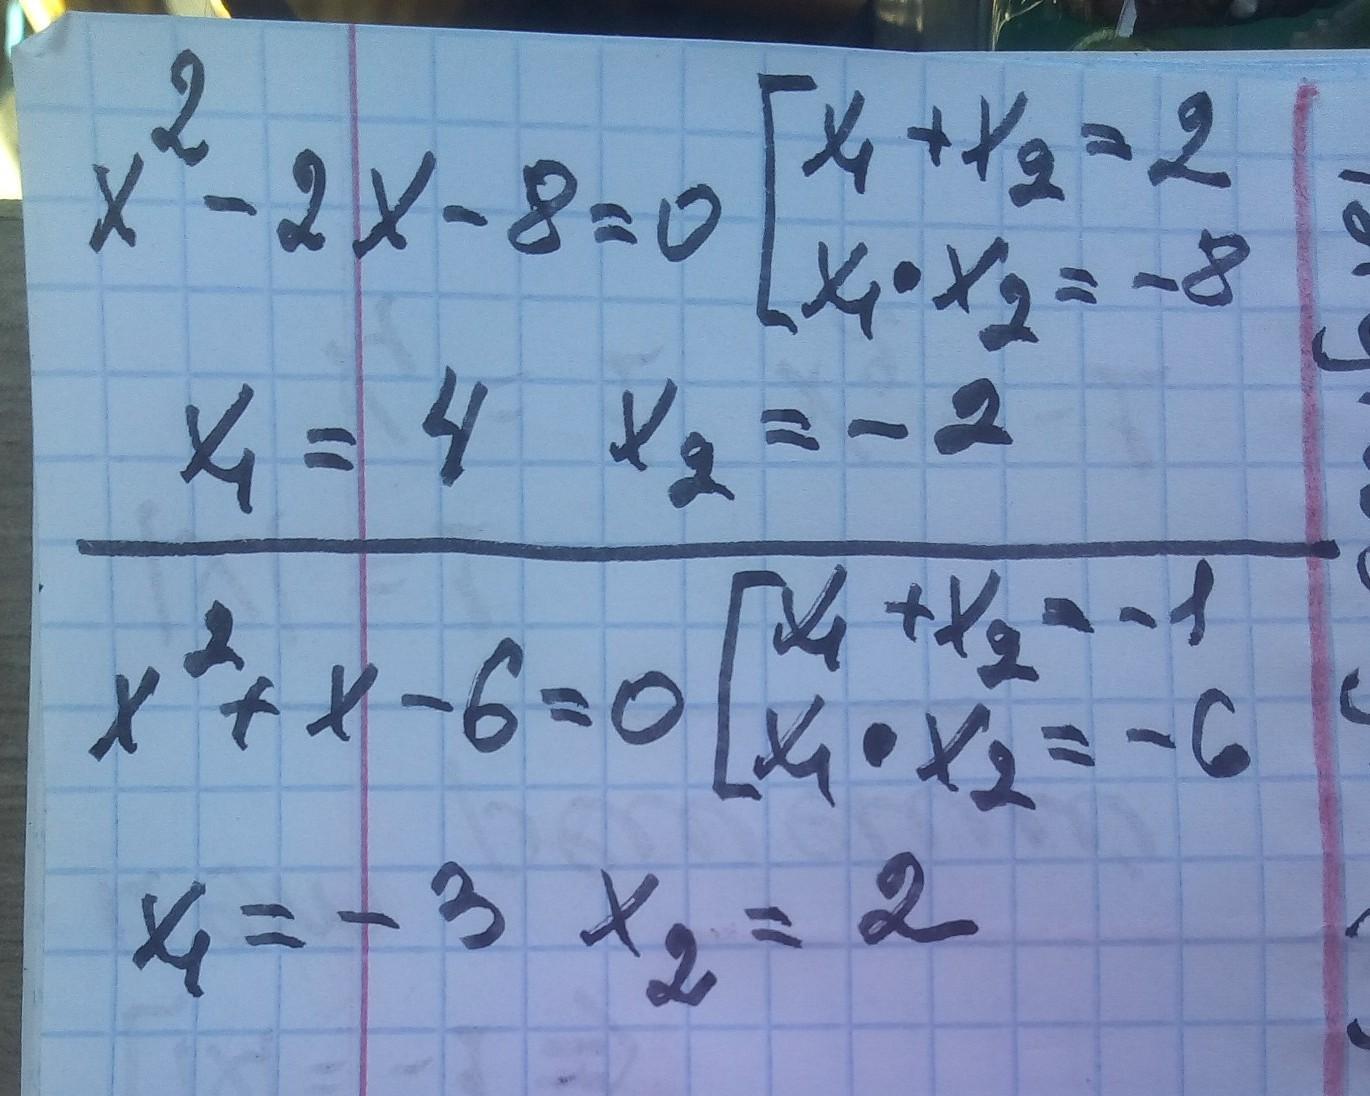 x² - 2x - 8 = 0 [ x₁ + x₂ = 2
x₁ • x₂ = -8
x₁ = 4 x₂ = -2
x² + x - 6 = 0 [ x₁ + x₂ = -1
x₁ • x₂ = -6
x₁ = -3 x₂ = 2